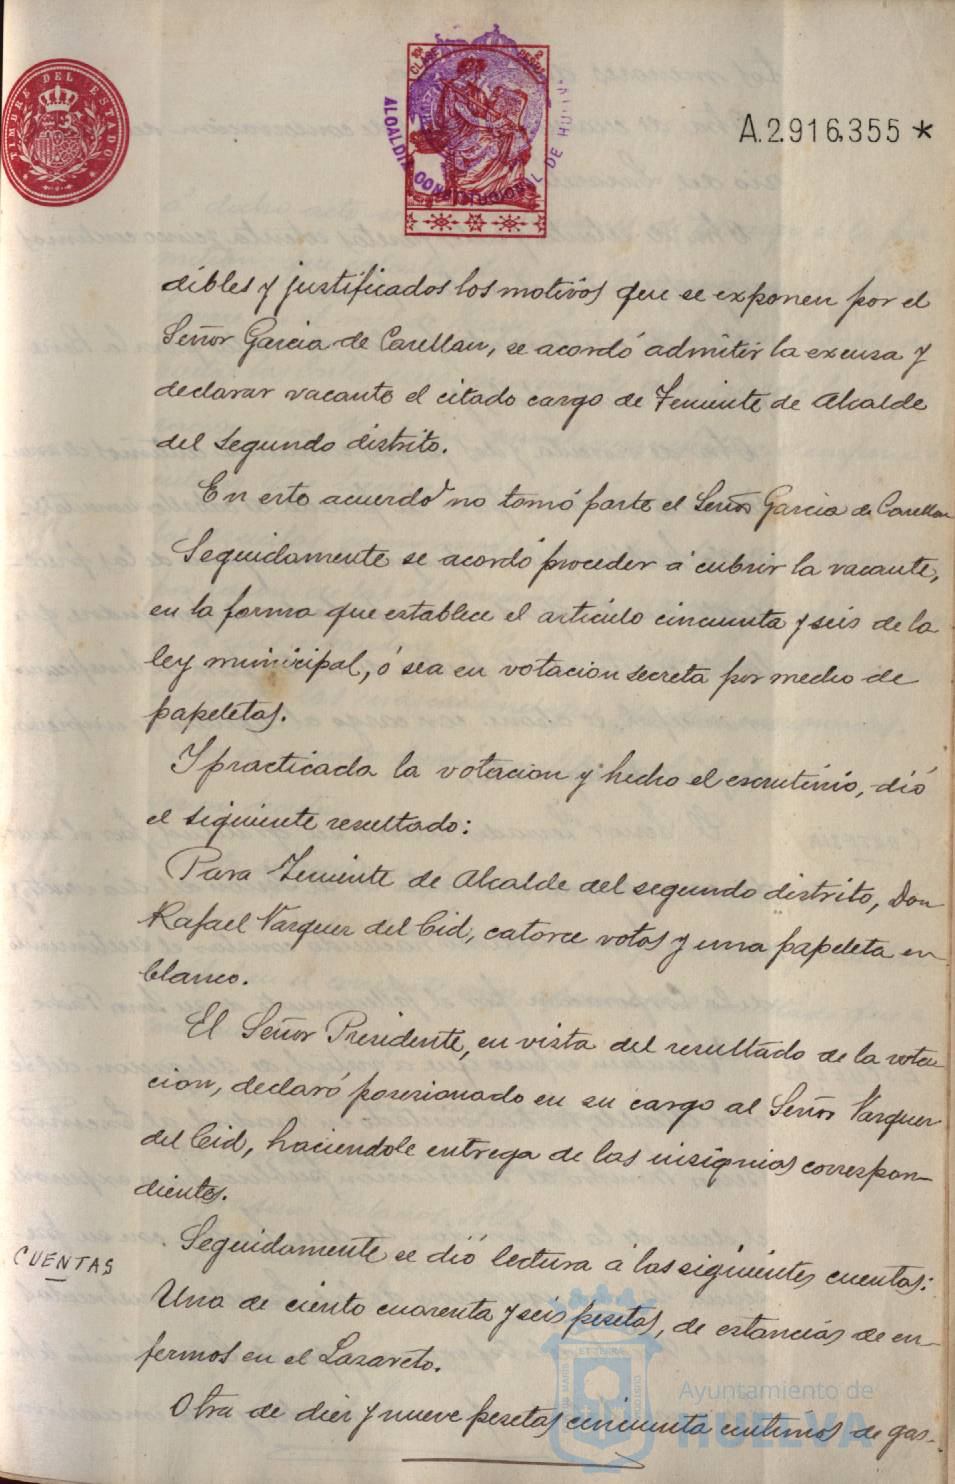 TIMBRE DEL ESTADO
10ª CLASE 2 PESETAS
ALCALDIA CONSTITUCIONAL DE HUELVA
A.2.916.355 *
dibles y justificados los motivos que se exponen por el
Señor Garcia de Carellan, se acordó admitir la excusa y
declarar vacante el citado cargo de Teniente de Alcalde
del segundo distrito.
En este acuerdo no tomó parte el Señor Garcia de Carellan
Seguidamente se acordó proceder á cubrir la vacante,
en la forma que establece el articulo cincuenta y seis de la
ley municipal, ó sea en votacion secreta por medio de
papeletas.
Y practicada la votacion y hecho el escrutinio, dió
el siguiente resultado:
Para Teniente de Alcalde del segundo distrito, Don
Rafael Vazquez del Cid, catorce votos y una papeleta en
blanco.
El Señor Presidente, en vista del resultado de la vota
cion, declaró posesionado en su cargo al Señor Vazquez
del Cid, haciendole entrega de las insignias correspon-
dientes.
CUENTAS
Seguidamente se dió lectura á las siguientes cuentas:
Una de ciento cuarenta y seis pesetas, de estancias de en-
fermos en el Lazareto.
Otra de diez y nueve pesetas cincuenta centimos de gas-
Ayuntamiento de
HUELVA